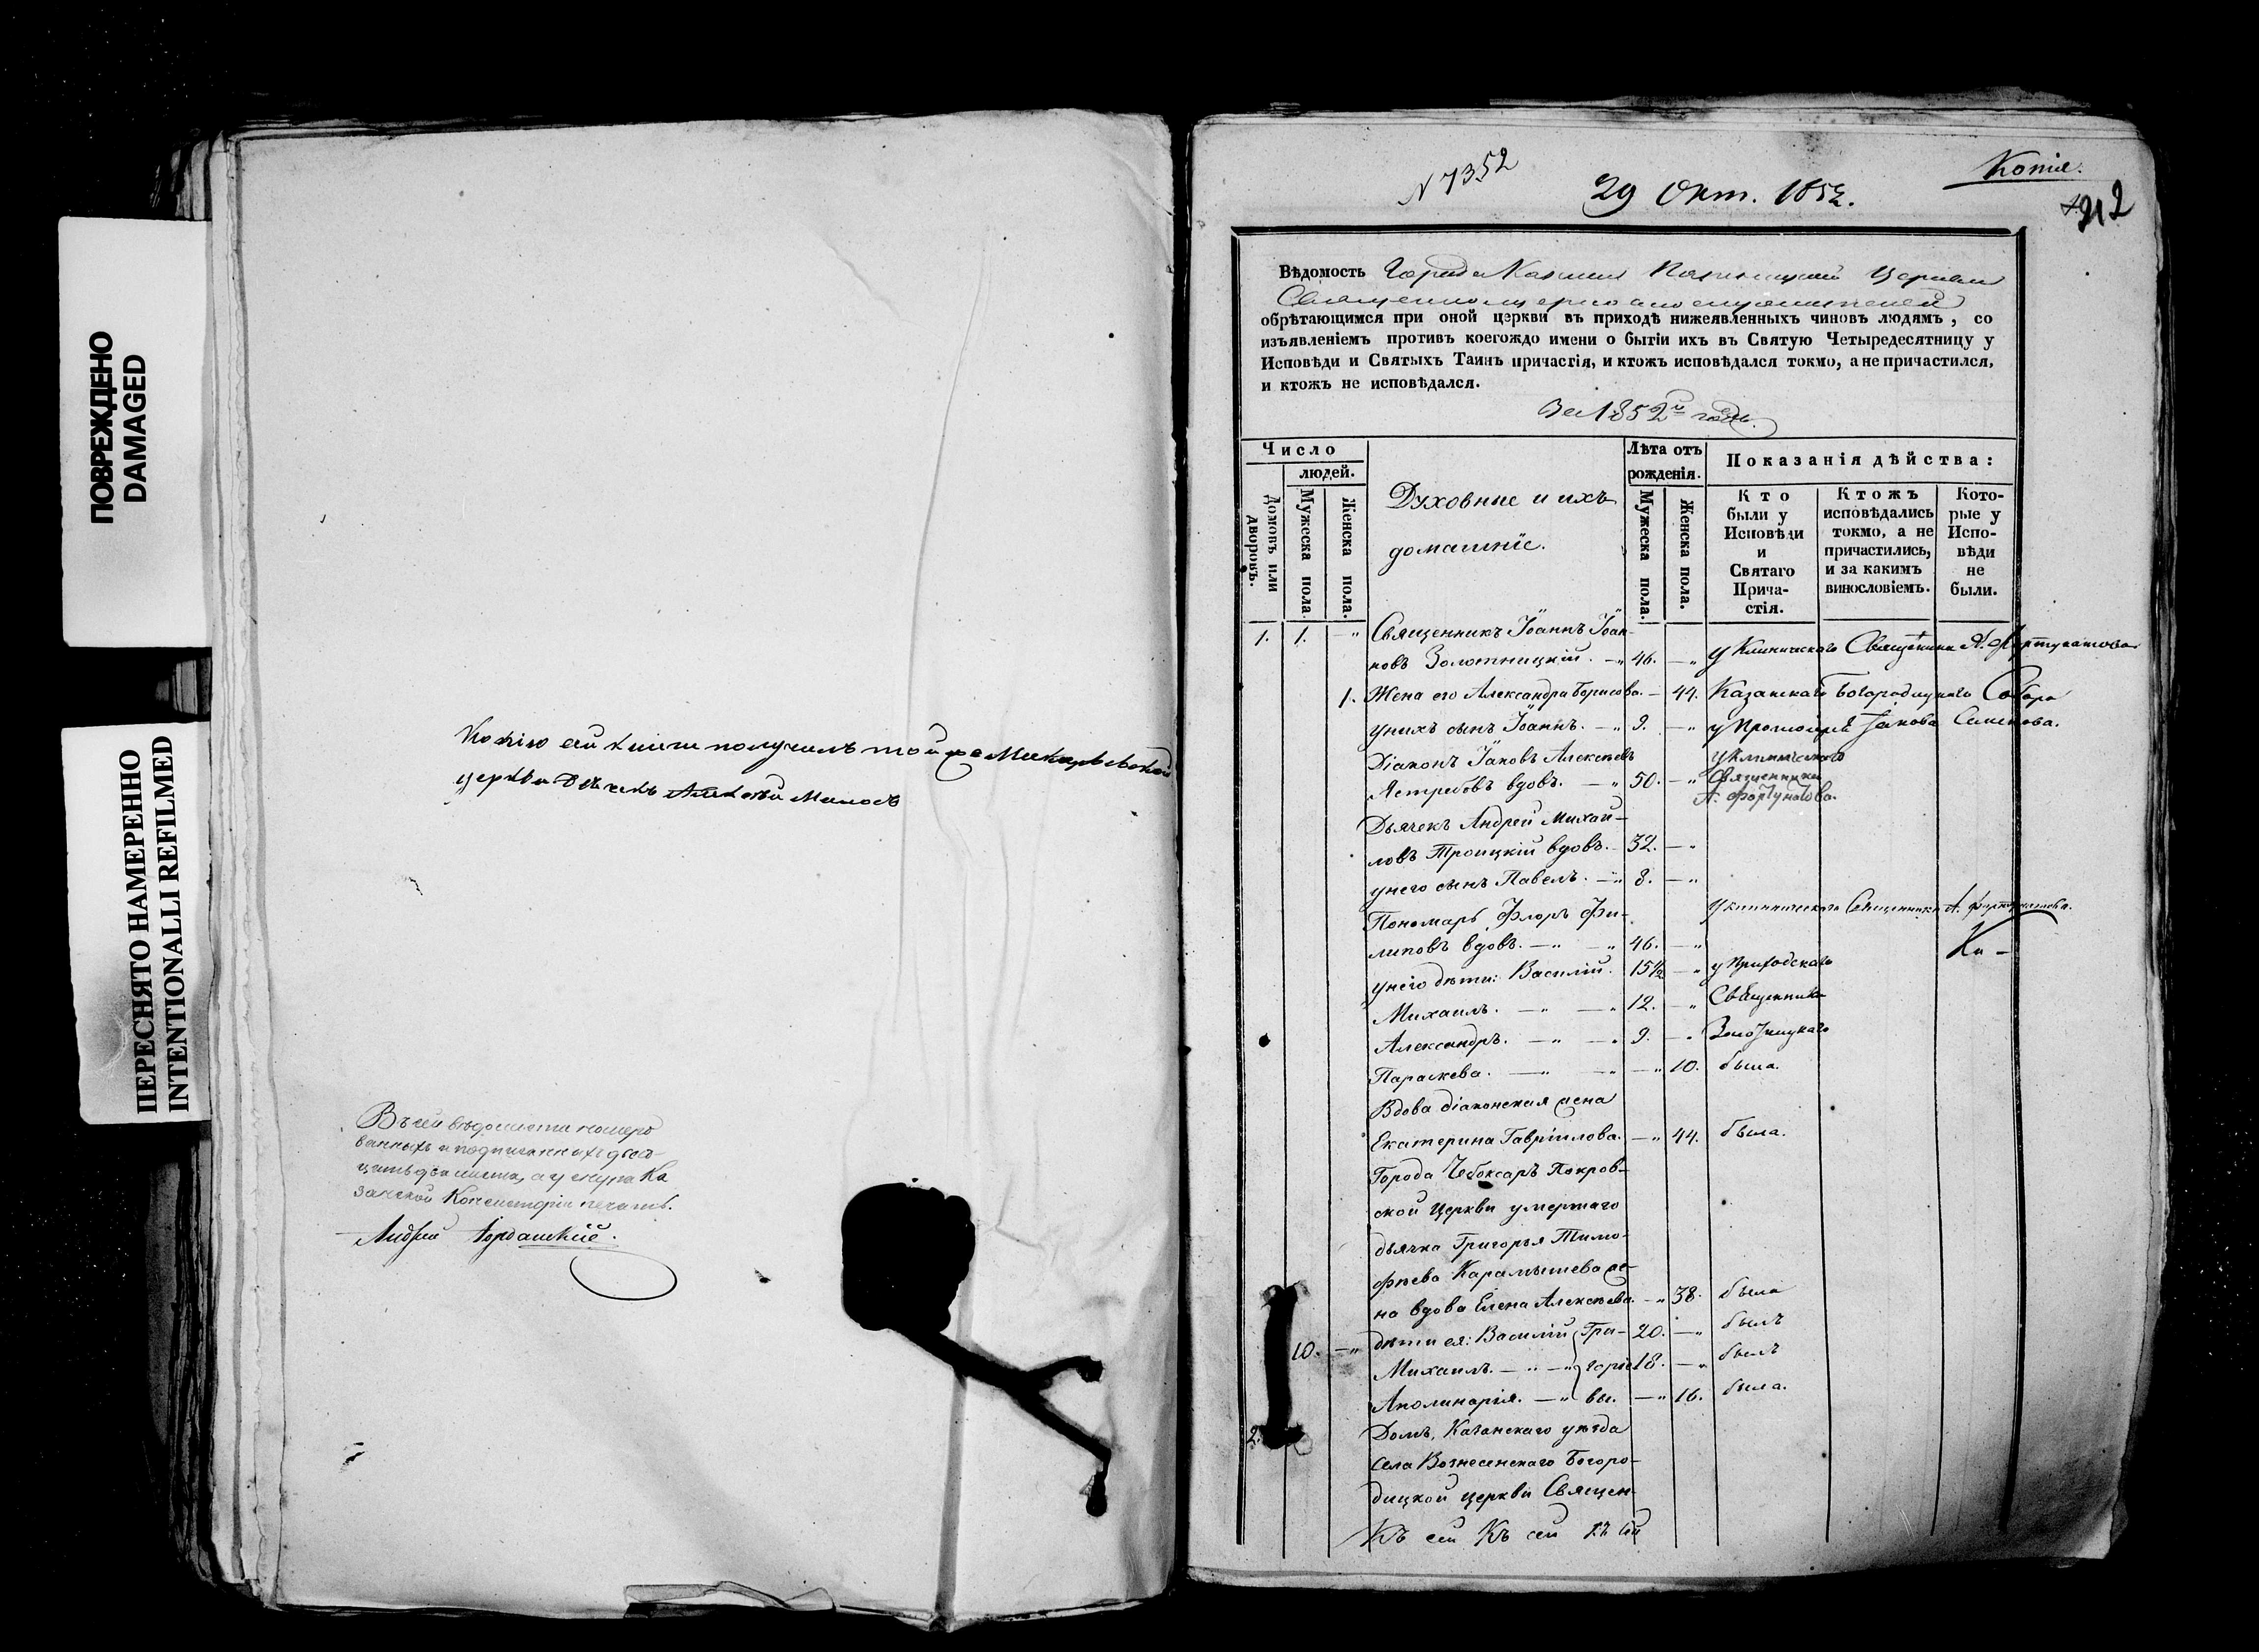 ПОВРЕЖДЕНО
DAMAGED
ПЕРЕСНЯТО НАМЕРЕННО
INTENTIONALLI REFILMED
Копію сей книги получилъ той же Макарьевской
церкви Дьячекъ Алексѣй
Въ сей вѣдомости номеро
ванныхъ и подписанныхъ двад
цать два листа, а у снура Ка
занской Консисторіи печать.
Андрей Іорданскій.
N 7352
29 Окт. 1852.
Копія.
212
Вѣдомость Города Казани Пятницкой Церкви
Священно церковно служителей
обрѣтающимся при оной церкви въ приходѣ нижеявленныхъ чиновъ людямъ, со
изъявленіемъ противъ коегождо имени о бытіи ихъ въ Святую Четыредесятницу у
Исповѣди и Святыхъ Таинъ причастія, и ктожъ исповѣдался токмо, а не причастился,
и ктожъ не исповѣдался.
За 1852й годъ.
Число
людей.
Домовъ или дворовъ.
Мужеска пола.
Женска пола.
Духовные и ихъ
домашніе.
Лѣта отъ
рожденія.
Мужеска пола.
Женска пола.
Показанія дѣйства:
Кто
были у
Исповѣди
и
Святаго
Прича-
стія.
Ктожъ
исповѣдались
токмо, а не
причастились,
и за какимъ
винословіемъ.
Кото-
рые у
Испо-
вѣди
не
были.
1. 1. —„ Священникъ Іоаннъ Іоан-
новъ Золотницкій. —„ 46. —„ у Клиническаго Священника А. Фортунатова
1. Жена его Александра Борисова. — 44. Казанскаго Богородицкаго Собора
у нихъ сынъ Іоаннъ. —„ 9. —„ у Протоіерея Іакова
Діаконъ Іаковъ Алексѣевъ у Клиническаго
Ястребовъ вдовъ. —„ 50. —„ Священника
А. Фортунатова.
Дьячекъ Андрей Михай-
ловъ Троицкій вдовъ. — 32. —„
у него сынъ Павелъ. —„ 8. —„
Пономарь Флоръ Фи- у клиническаго Священника А. Фортунатова.
липовъ вдовъ. —„ —„ 46. —„ Ка-
у него дѣти: Василій. 15½ —„ у Приходскаго
Михаилъ. —„ —„ 12. —„ Священника
Александръ. —„ —„ 9. —„ Золотницкаго
Параскева. —„ —„ —„ 10. была.
Вдова діаконская жена
Екатерина Гавріилова. —„ 44. была.
Города Чебоксаръ Покров-
ской Церкви умершаго
дьячка Григорья Тимо-
фѣева Карамышева же-
на вдова Елена Алексѣева. —„ 38. была
10. —„ дѣти ея: Василій Гри- 20. —„ былъ
Михаилъ. —„ —„ горье 18. —„ былъ
Аполинарія. —„ вы. —„ 16. была.
2. Домъ, Казанскаго уѣзда
села Вознесенскаго Богоро-
дицкой церкви Священ-
Къ сей Къ сей Къ сей